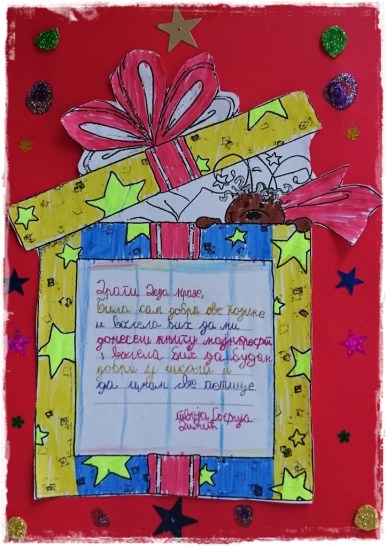 Драги Деда Мразе,
Била сам добра ове године
и волела бих да ми
донесеш књигу мајнкрафт
и волела бих да будем
добра у школи и
да имам све петице.
твоја Софија